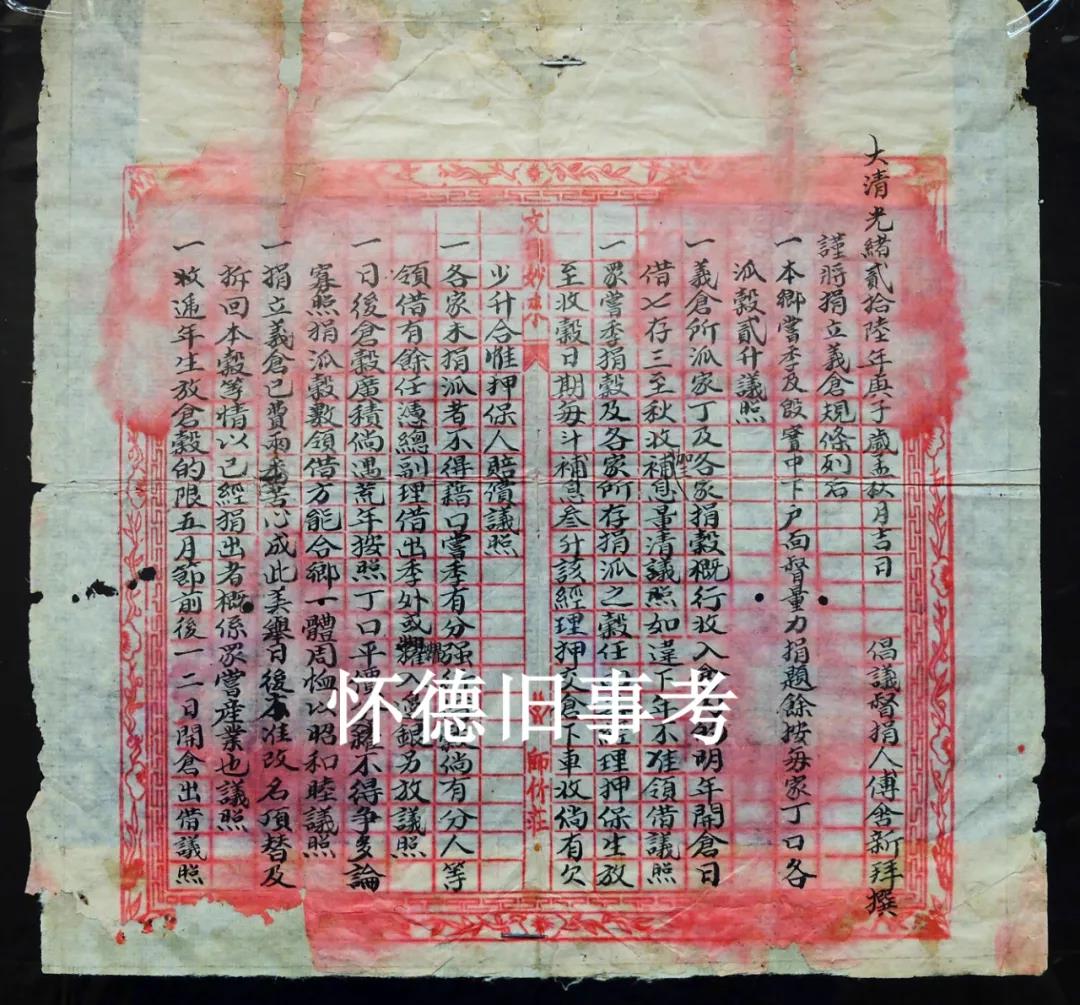 大清光緒貳拾陸年庚子歲孟秋月吉日 倡議督捐人傅舍新拜撰
謹將捐立義倉規條列右
一本鄉嘗季及殷實中下戶面督量力捐題餘按每家丁口各
派穀貳升議照
一義倉所派家丁及各家捐穀概行收入倉 明年開倉日
借七存三至秋收補息加弍量清議照如違下年不准領借議照
一眾嘗季捐穀及各家所存捐派之穀任 經理押保生放
至收穀日期每斗補息叁升該經理押交倉下車收倘有欠
少升合惟押保人賠償議照
文 妙 小
師竹莊
一各家未捐派者不得藉口嘗季有分強 倘有分人等
領借有餘任憑總副理借出季外或糶入 銀另放議照
一日後倉穀廣積倘遇荒年按照丁口平 糶不得爭多論
寡照捐派穀數領借方能合鄉一體周恤以昭和睦議照
一捐立義倉已費兩番苦心成此美舉日後不准改名頂替及
拆回本穀等情以已經捐出者概係眾嘗產業也議照
一收遞年生放倉穀的限五月節前後一二日開倉出借議照
怀德旧事考